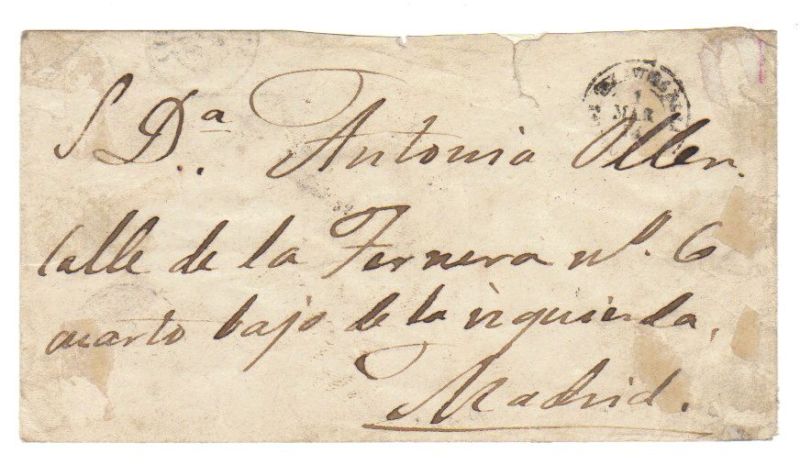 1
MAR
S D.ª Antonia Oller.
Calle de la Ternera nº. 6
cuarto bajo de la izquierda,
Madrid.